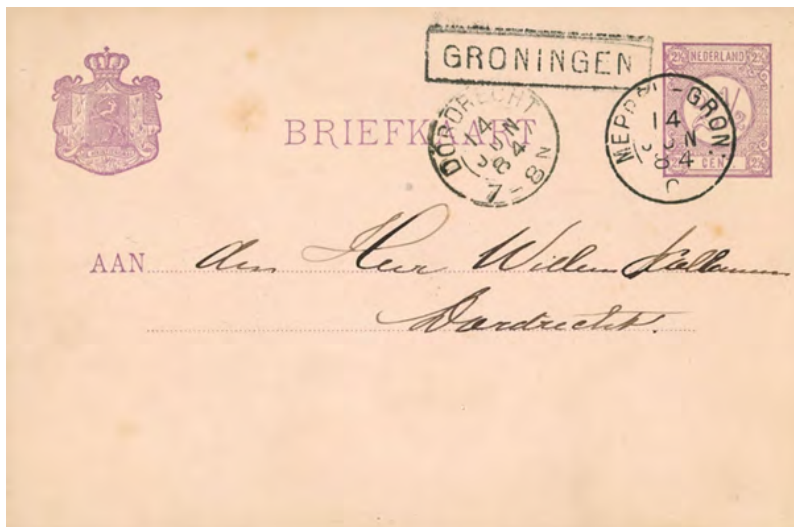 GRONINGEN
NEDERLAND
2½ 2½
CENT
BRIEFKAART
DORDRECHT
14
JUN
84
7-8N
MEPPEL-GRON.
14
JUN
84
AAN den Heer Willem
Dordrecht.